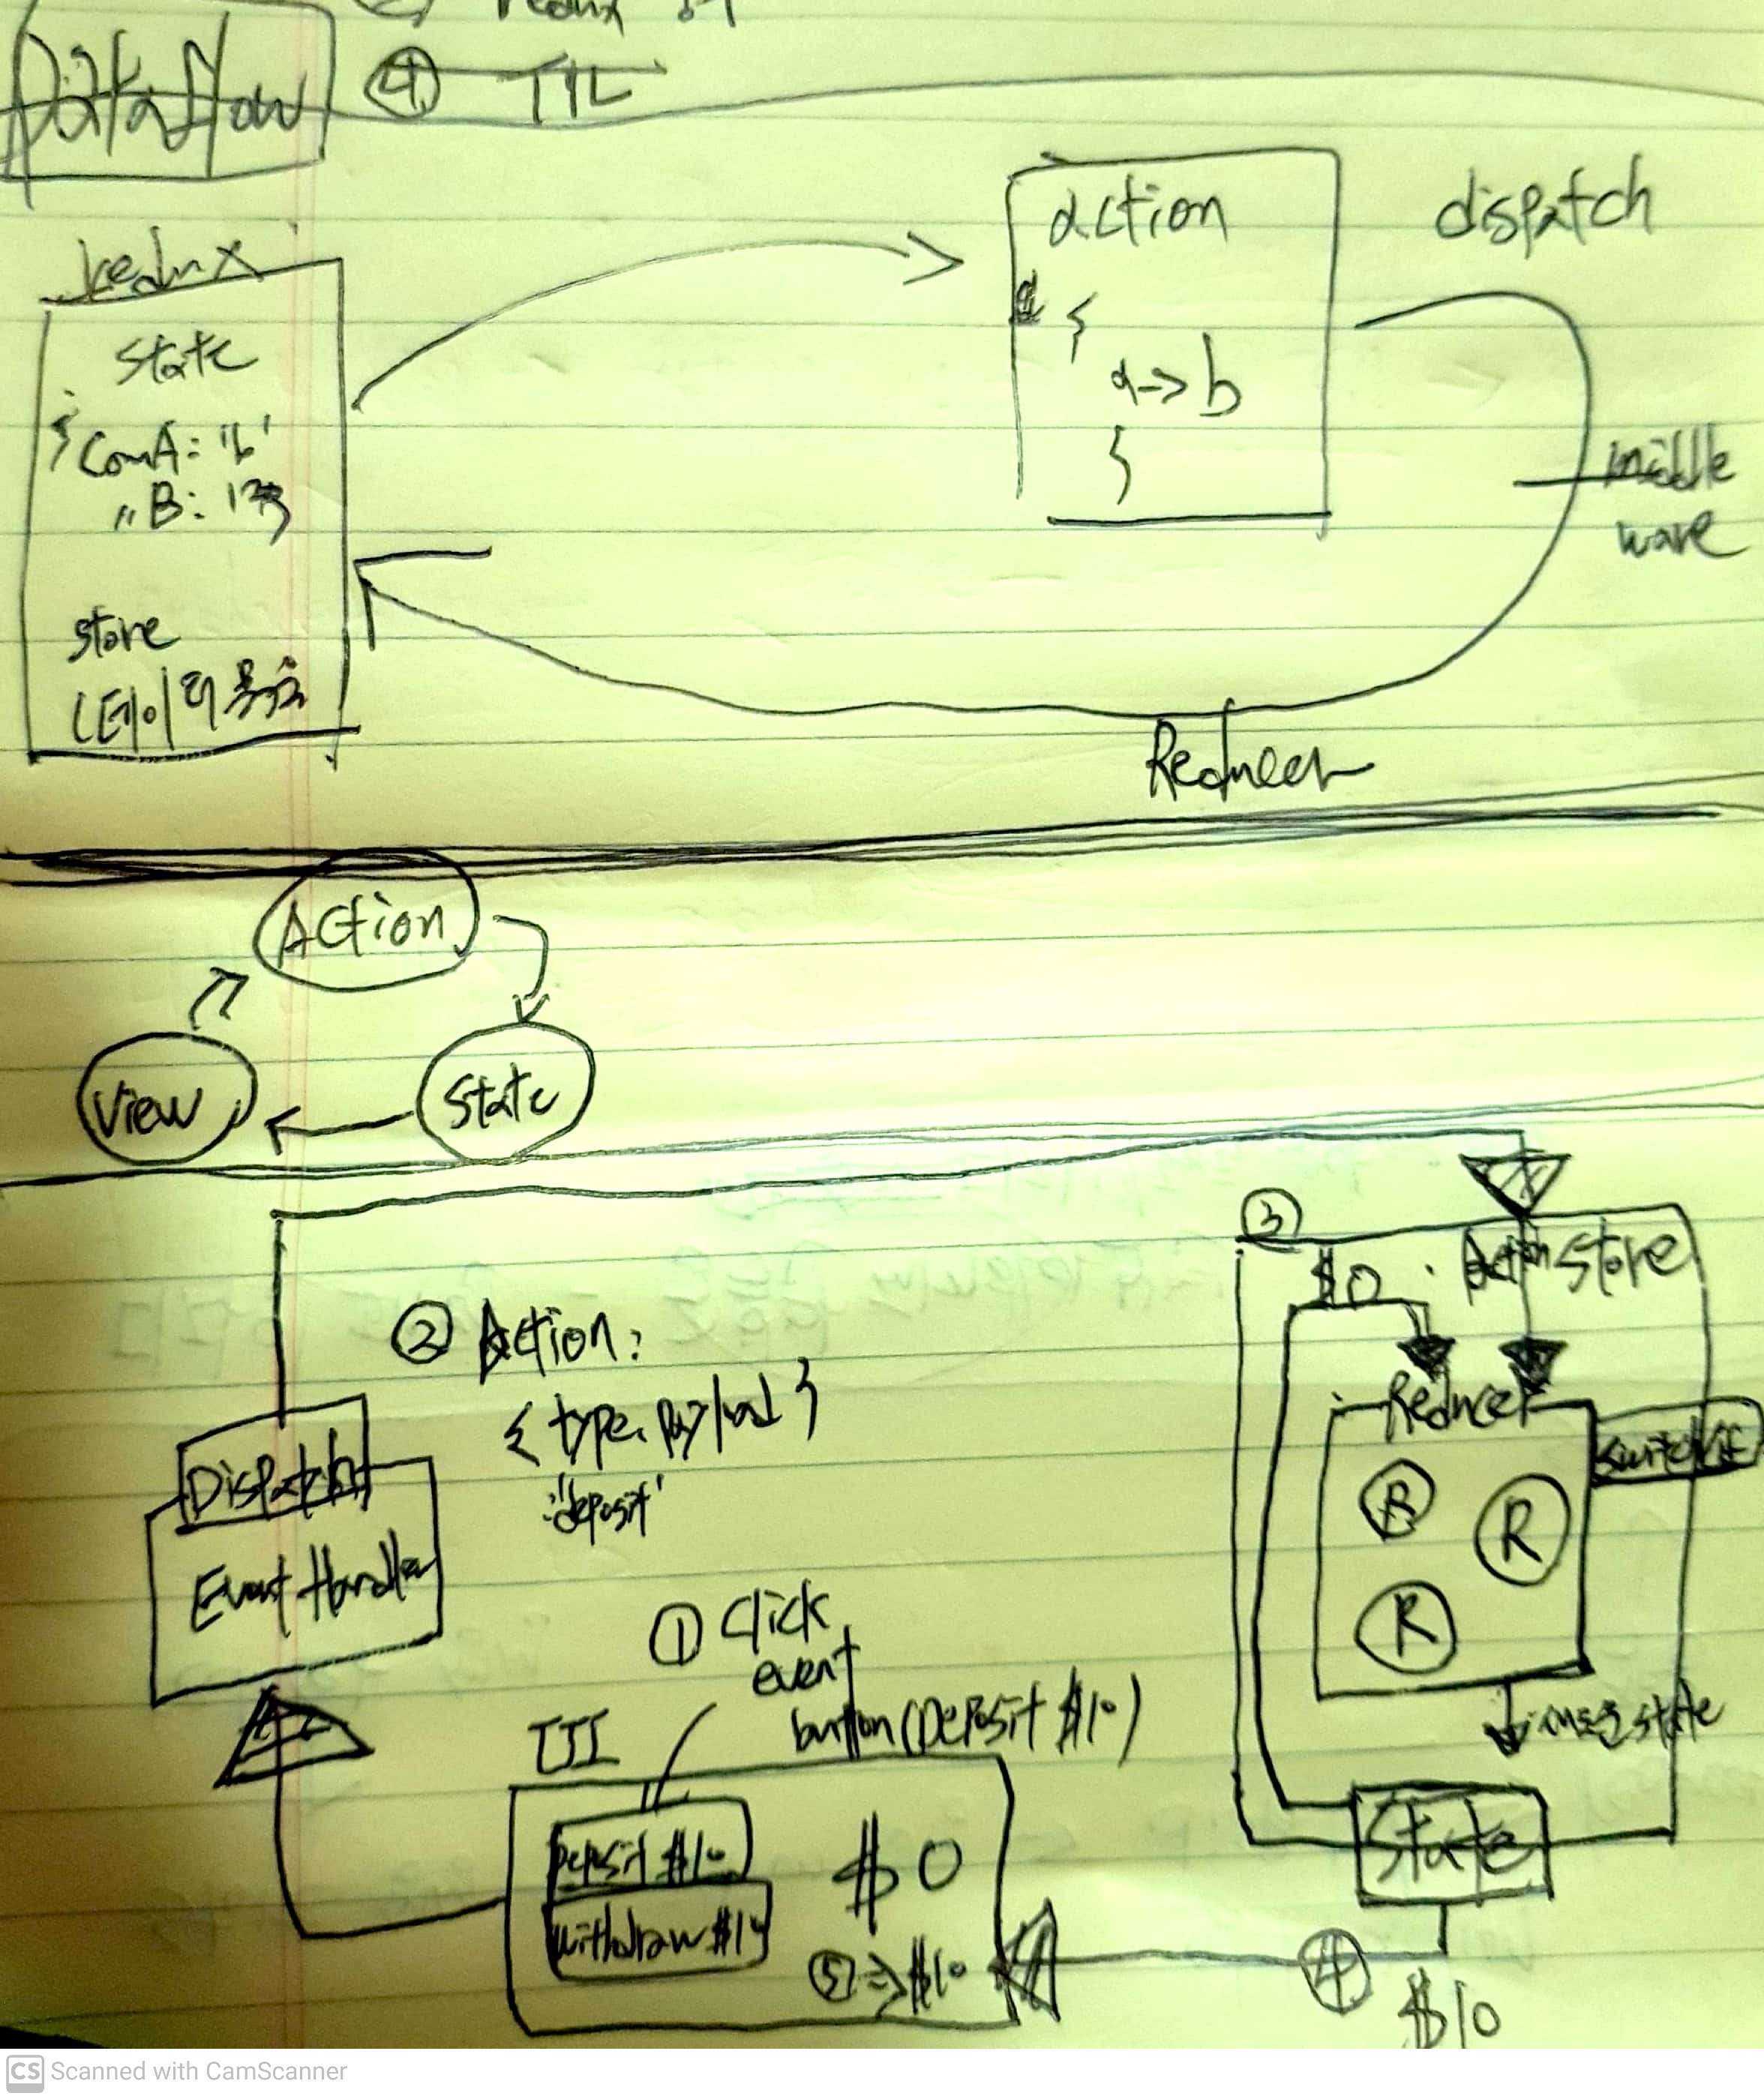 Dataflow
④ TIL
Redux
State
{ ComA: 'b'
〃 B: 123
store
action
{
a -> b
}
dispatch
middle
ware
Reducer
Action
View
State
② Action:
{ type, payload }
: 'deposit'
Dispatch
Event Handler
① Click
event
button (Deposit $10)
UI
Deposit $10
Withdraw $10
$0
⑤ => $10
③
$0
Action
Store
Reducer
R
R
R
state
State
④
$10
CS Scanned with CamScanner